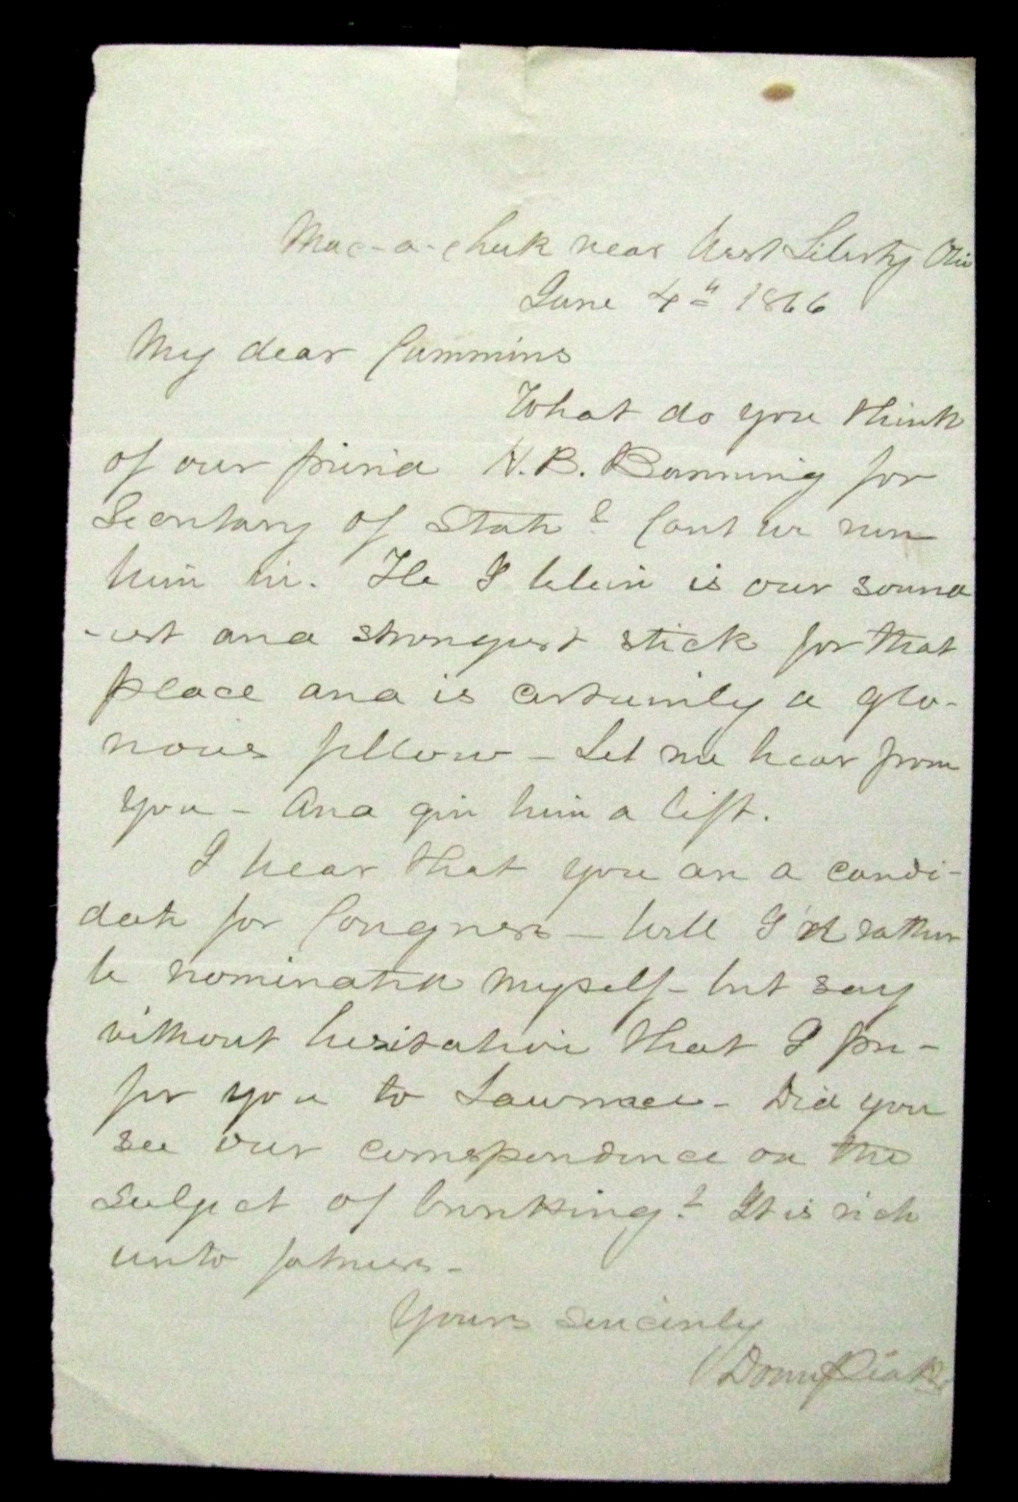 Mac-a-cheek near West Liberty Ohio
June 4th 1866
My dear Cummins
What do you think
of our friend H. B. Banning for
Secretary of State? Cant we run
him in. He I believe is our sound
-est and strongest stick for that
place and is certainly a glo-
rious fellow - Let me hear from
you - And give him a lift.
I hear that you are a candi-
date for Congress - Well I'd rather
be nominated myself - but say
without hesitation that I pre-
fer you to Lawrence - Did you
see our correspondence on the
subject of ? It is rich
unto fatness -
Yours sincerely
Donn Piatt